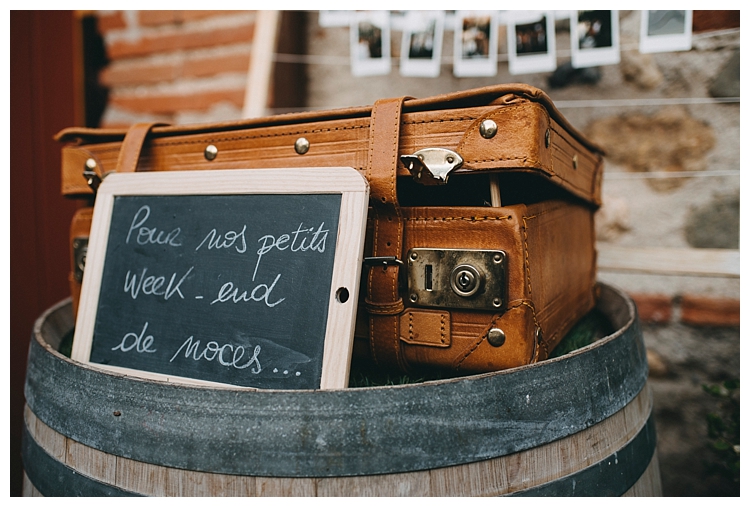 Pour nos petits
Week-end
de noces...